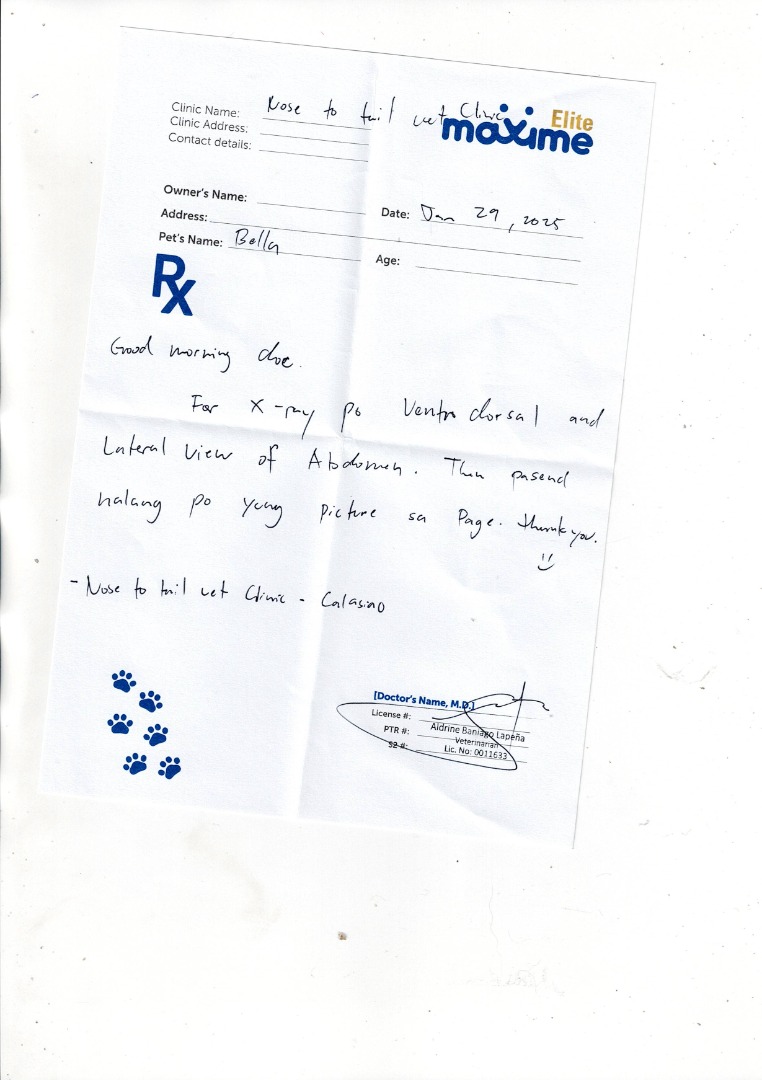 Clinic Name: Nose to tail vet Clinic
Clinic Address:
Contact details:
maxime Elite
Owner's Name:
Date: Jan 29, 2025
Address:
Pet's Name: Bella
Age:
Rx
Good morning doc.
For X-ray po Ventro dorsal and
Lateral view of Abdomen. Then pasend
nalang po yung picture sa Page. thank you.
- Nose to tail vet Clinic - Calasiao
[Doctor's Name, M.D.]
License #:
Aldrine Baniago Lapeña
PTR #:
Veterinarian
S2 #:
Lic. No: 0011633